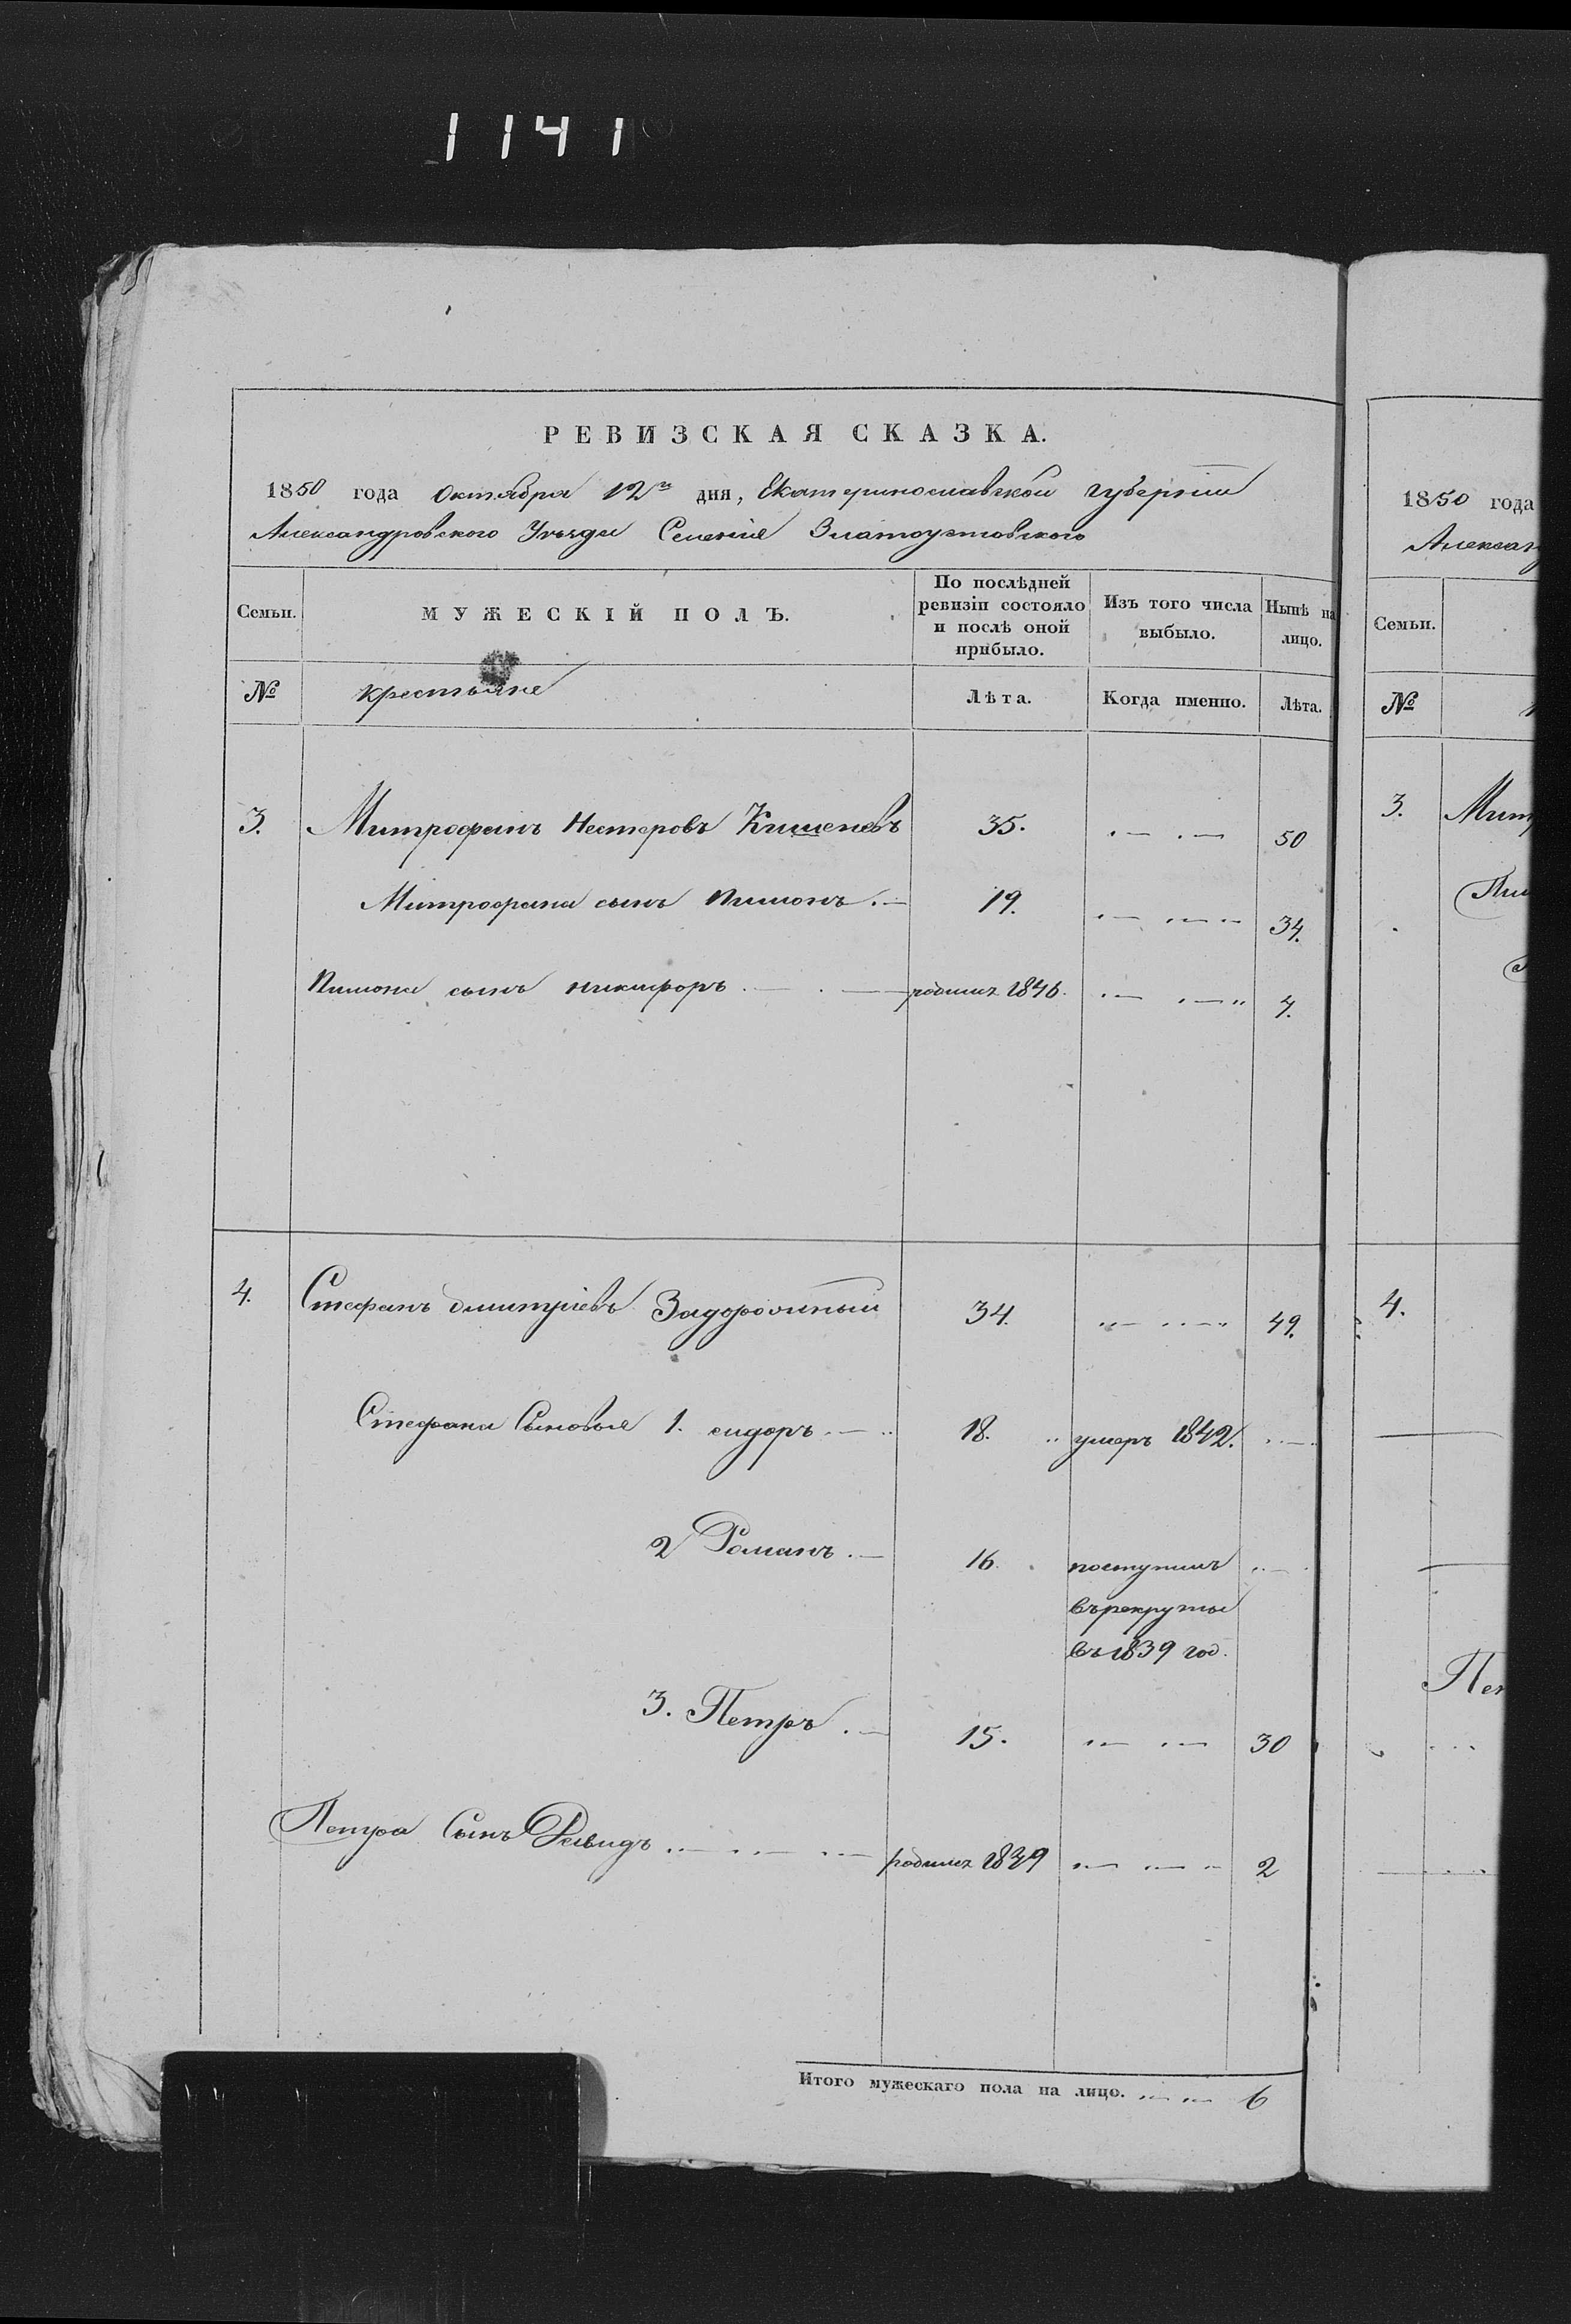 1141
РЕВИЗСКАЯ СКАЗКА.
1850 года Октября 12го дня, Екатеринославской губернии
Александровского Уѣзда Селенія Златоустовского
Семьи. МУЖЕСКІЙ ПОЛЪ. По послѣдней ревизіи состояло и послѣ оной прибыло. Изъ того числа выбыло. Нынѣ на лицо.
№ крестьяне Лѣта. Когда именно. Лѣта.
3. Митрофанъ Нестеровъ 35. 50
Митрофана сынъ Пимонъ 19. 34.
Пимона сынъ никифоръ родился 1846. 4.
4. Стефанъ дмитріевъ Задорожный 34. 49.
Стефана Сыновья 1. сидоръ 18. умеръ 1842.
2 Романъ 16. поступилъ
въ рекруты
въ 1839 год.
3. Петръ 15. 30
Петра Сынъ родился 1849 2
Итого мужескаго пола на лицо. 6
1850 года
Александ
Семьи.
№
3. Мит
Пим
4.
Пет